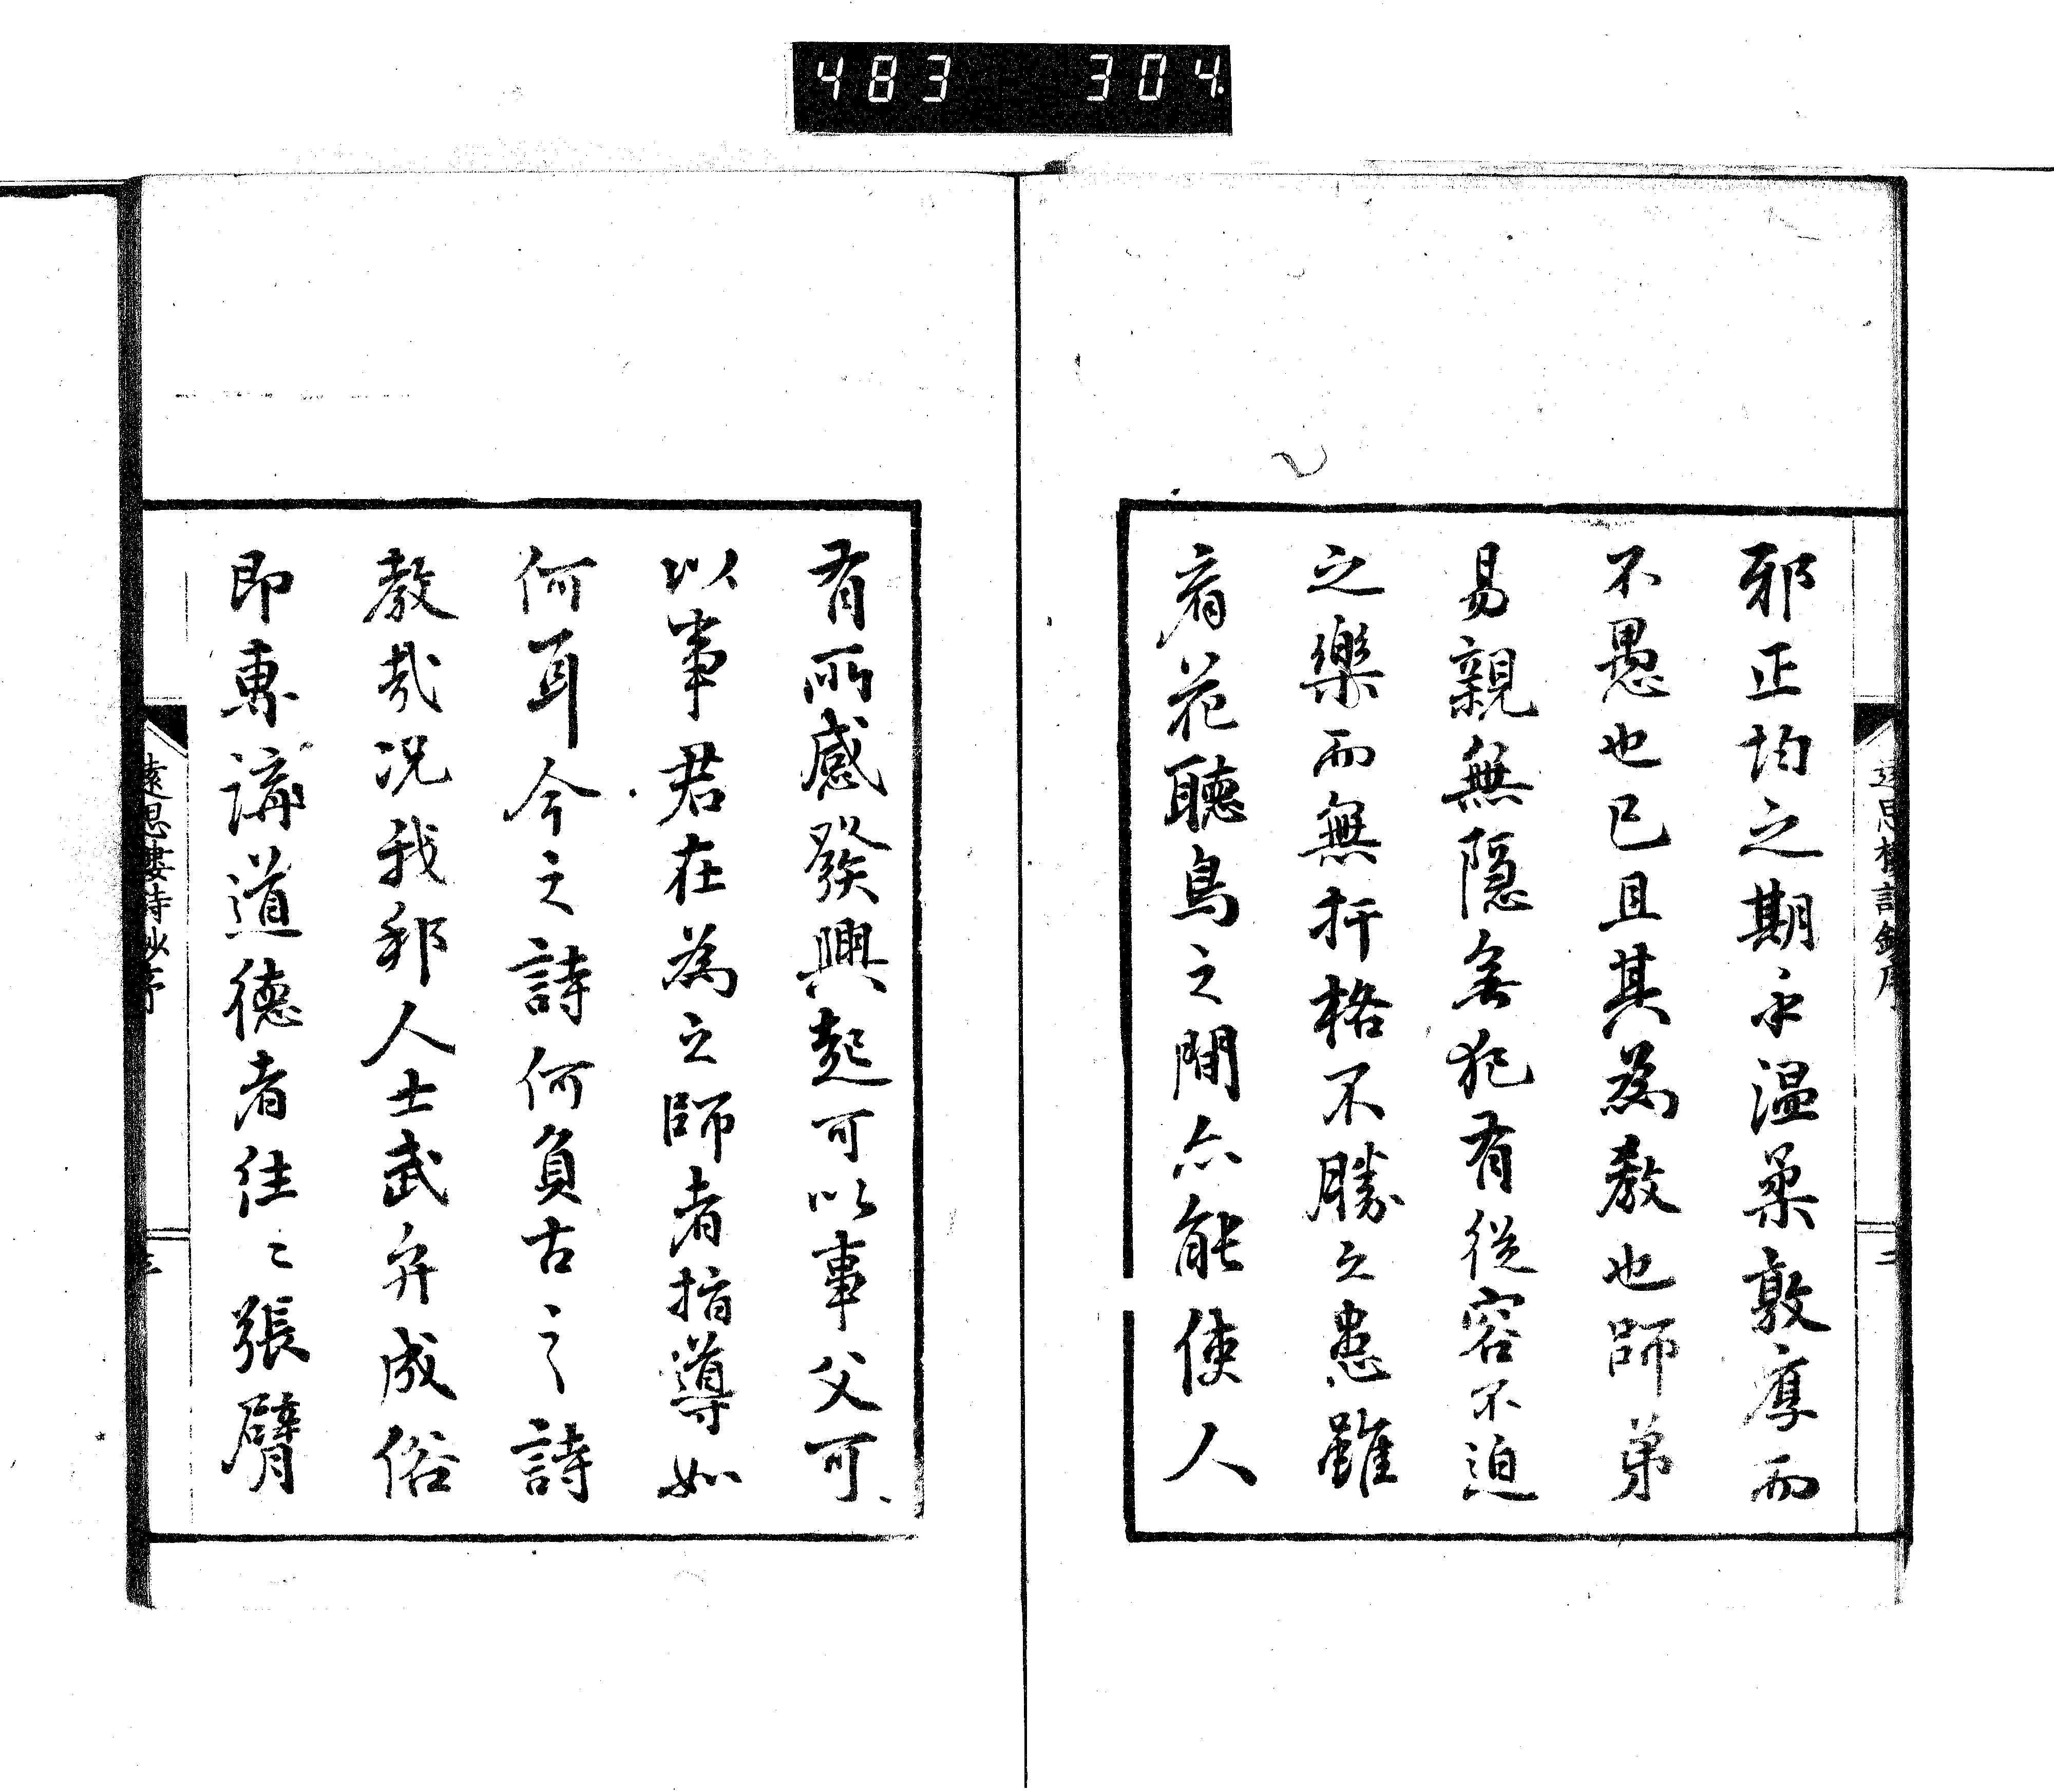 483 304
邪正均之期永温柔敦厚而
不愚也已且其為教也師弟
易親無隠無犯有從容不迫
之樂而無扞格不勝之患雖
看花聽鳥之間亦能使人
有所感發興起可以事父可
以事君在為之師者指導如
何耳今之詩何負古之詩
教哉況我邦人士武弁成俗
即専講道德者往〻張臂
遠思樓詩鈔序
二
遠思樓詩鈔序
三